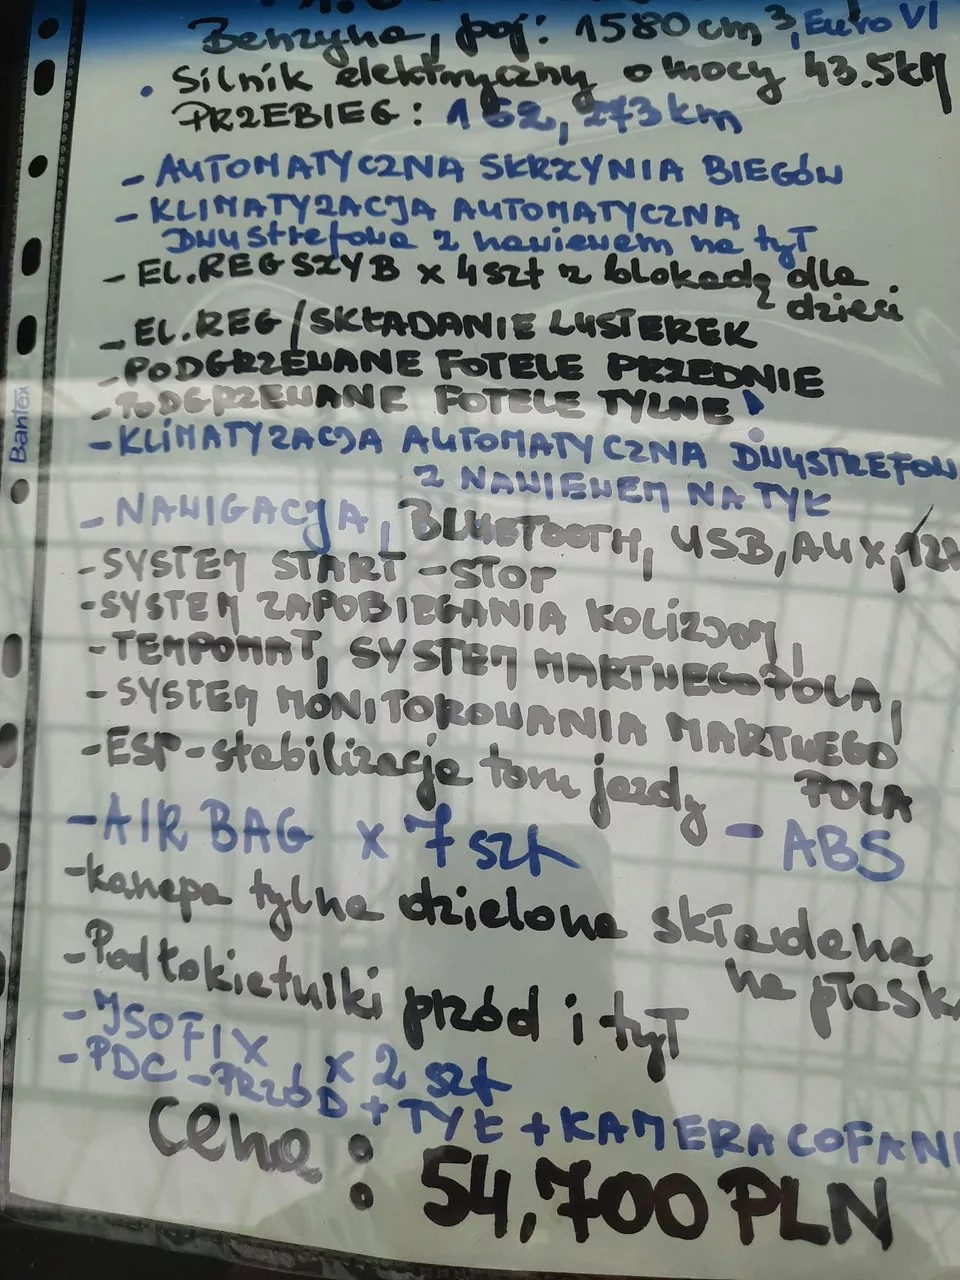 Benzyna, poj: 1580 cm³, Euro VI
• Silnik elektryczny o mocy 43.5kM
PRZEBIEG: 162,273 km
- AUTOMATYCZNA SKRZYNIA BIEGÓW
- KLIMATYZACJA AUTOMATYCZNA
Dwustrefowa z nawiewem na tył
- EL.REG SZYB x 4 szt z blokadą dla
dzieci
- EL.REG/SKŁADANIE LUSTEREK
- PODGRZEWANE FOTELE PRZEDNIE
- PODGRZEWANE FOTELE TYLNE
- KLIMATYZACJA AUTOMATYCZNA DWUSTREFOW
Z NAWIEWEM NA TYŁ
- NAWIGACJA, BLUETOOTH, USB, AUX, 12V
- SYSTEM START-STOP
- SYSTEM ZAPOBIEGANIA KOLIZJOM,
- TEMPOMAT, SYSTEM MARTWEGO POLA,
- SYSTEM MONITOROWANIA MARTWEGO
POLA
- ESP-stabilizacja toru jazdy
- AIR BAG x 7 szt - ABS
- kanapa tylna dzielona składana
na płask
- Podłokietniki przód i tył
- ISOFIX x 2 szt
- PDC - PRZÓD + TYŁ + KAMERA COFANI
Cena: 54,700 PLN
Bantex